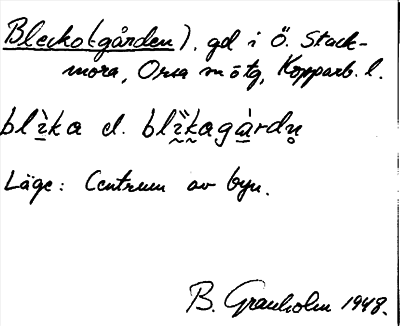 Blecko(-gården), gd i Ö. Stack-
mora, Orsa sn o tg, Kopparb. l.
blìka el. blìkagàrdn̥
Läge: Centrum av byn.
B. Granholm 1948.